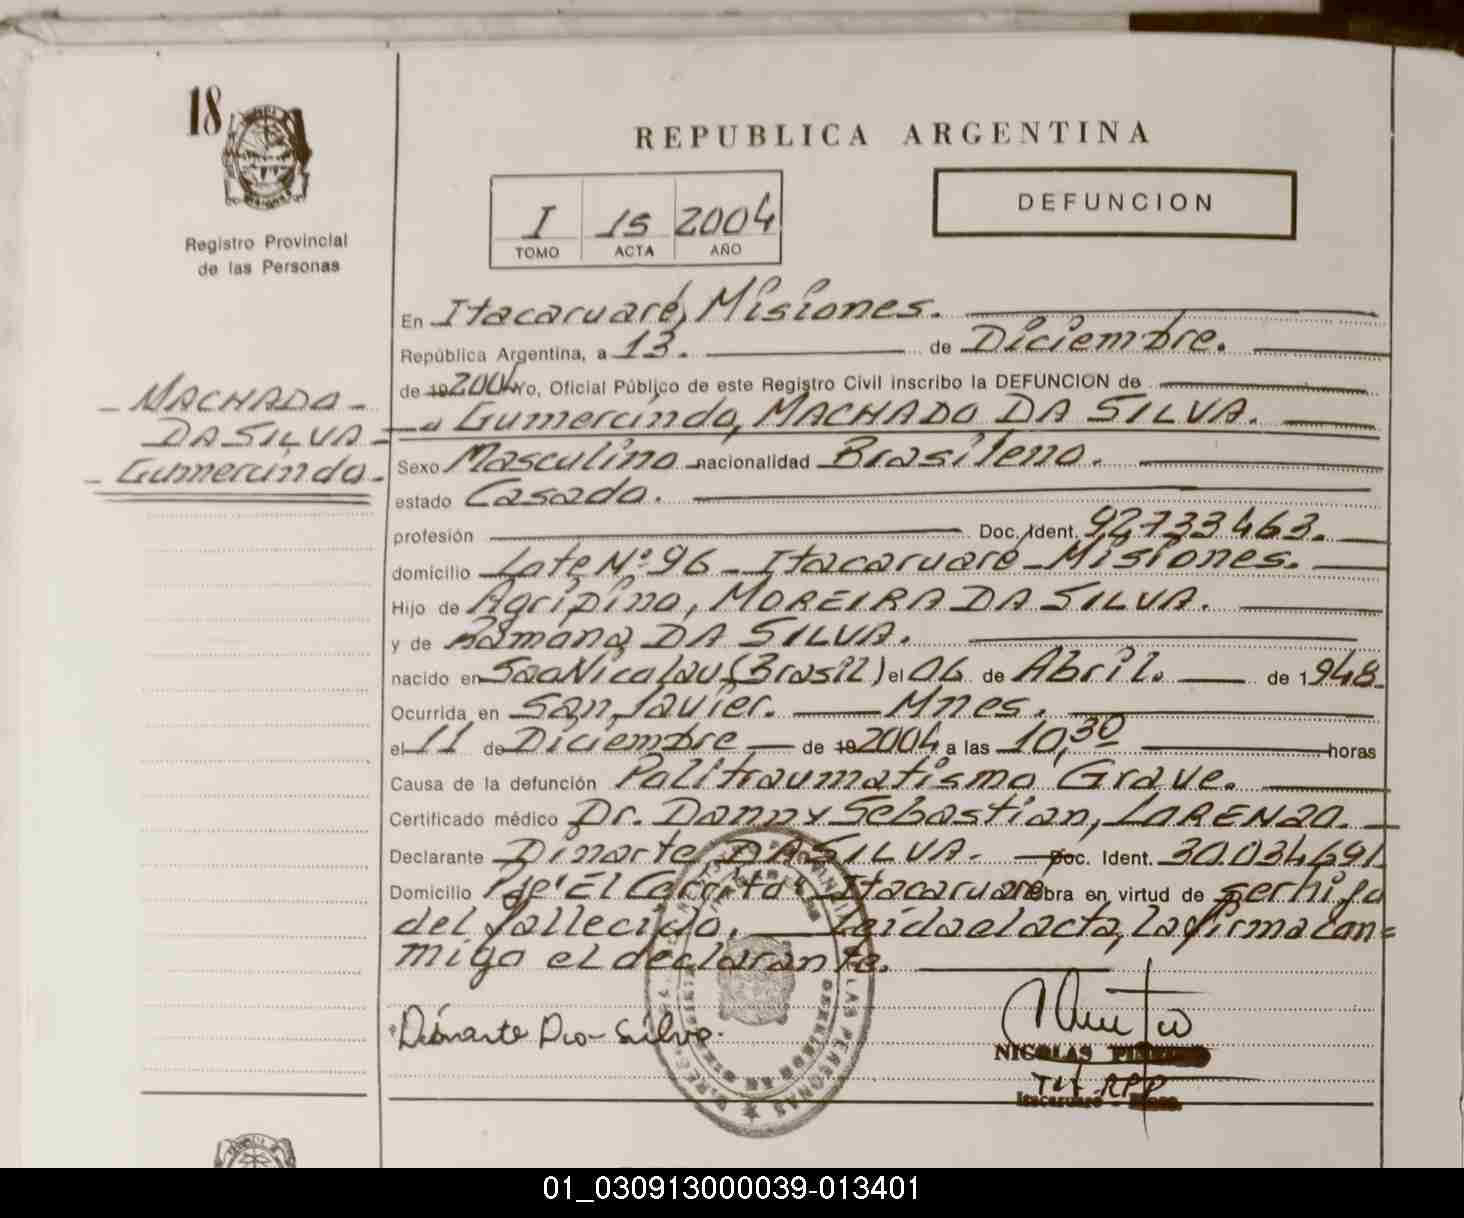 18
REPUBLICA ARGENTINA
Registro Provincial
de las Personas
I 15 2004
TOMO ACTA AÑO
DEFUNCION
MACHADO
DA SILVA
Gumercindo
En Itacaruaré, Misiones.
República Argentina, a 13. de Diciembre.
de 19 2004 Yo, Oficial Público de este Registro Civil inscribo la DEFUNCION de
Gumercindo, MACHADO DA SILVA.
Sexo Masculino nacionalidad Brasileno.
estado Casado.
profesión Doc. Ident. 92733463.
domicilio Lote Nº 96 - Itacaruaré - Misiones.
Hijo de Agripino, MOREIRA DA SILVA.
y de Ramona, DA SILVA.
nacido en Sao Nicolau (Brasil) el 06 de Abril. de 1948.
Ocurrida en San Javier. Mnes.
el 11 de Diciembre de 19 2004 a las 10,30 horas
Causa de la defunción Politraumatismo Grave.
Certificado médico Dr. Danny Sebastian, LORENZO.
Declarante Dinarte DA SILVA. Doc. Ident. 30.034.691
Domicilio Pje "El Cerrito" Itacaruaré obra en virtud de ser hijo
del fallecido. Leída el acta, la firma con=
migo el declarante.
Dinarte Da Silva
NICOLAS
Tit. RPP
Itacaruaré
01_030913000039-013401